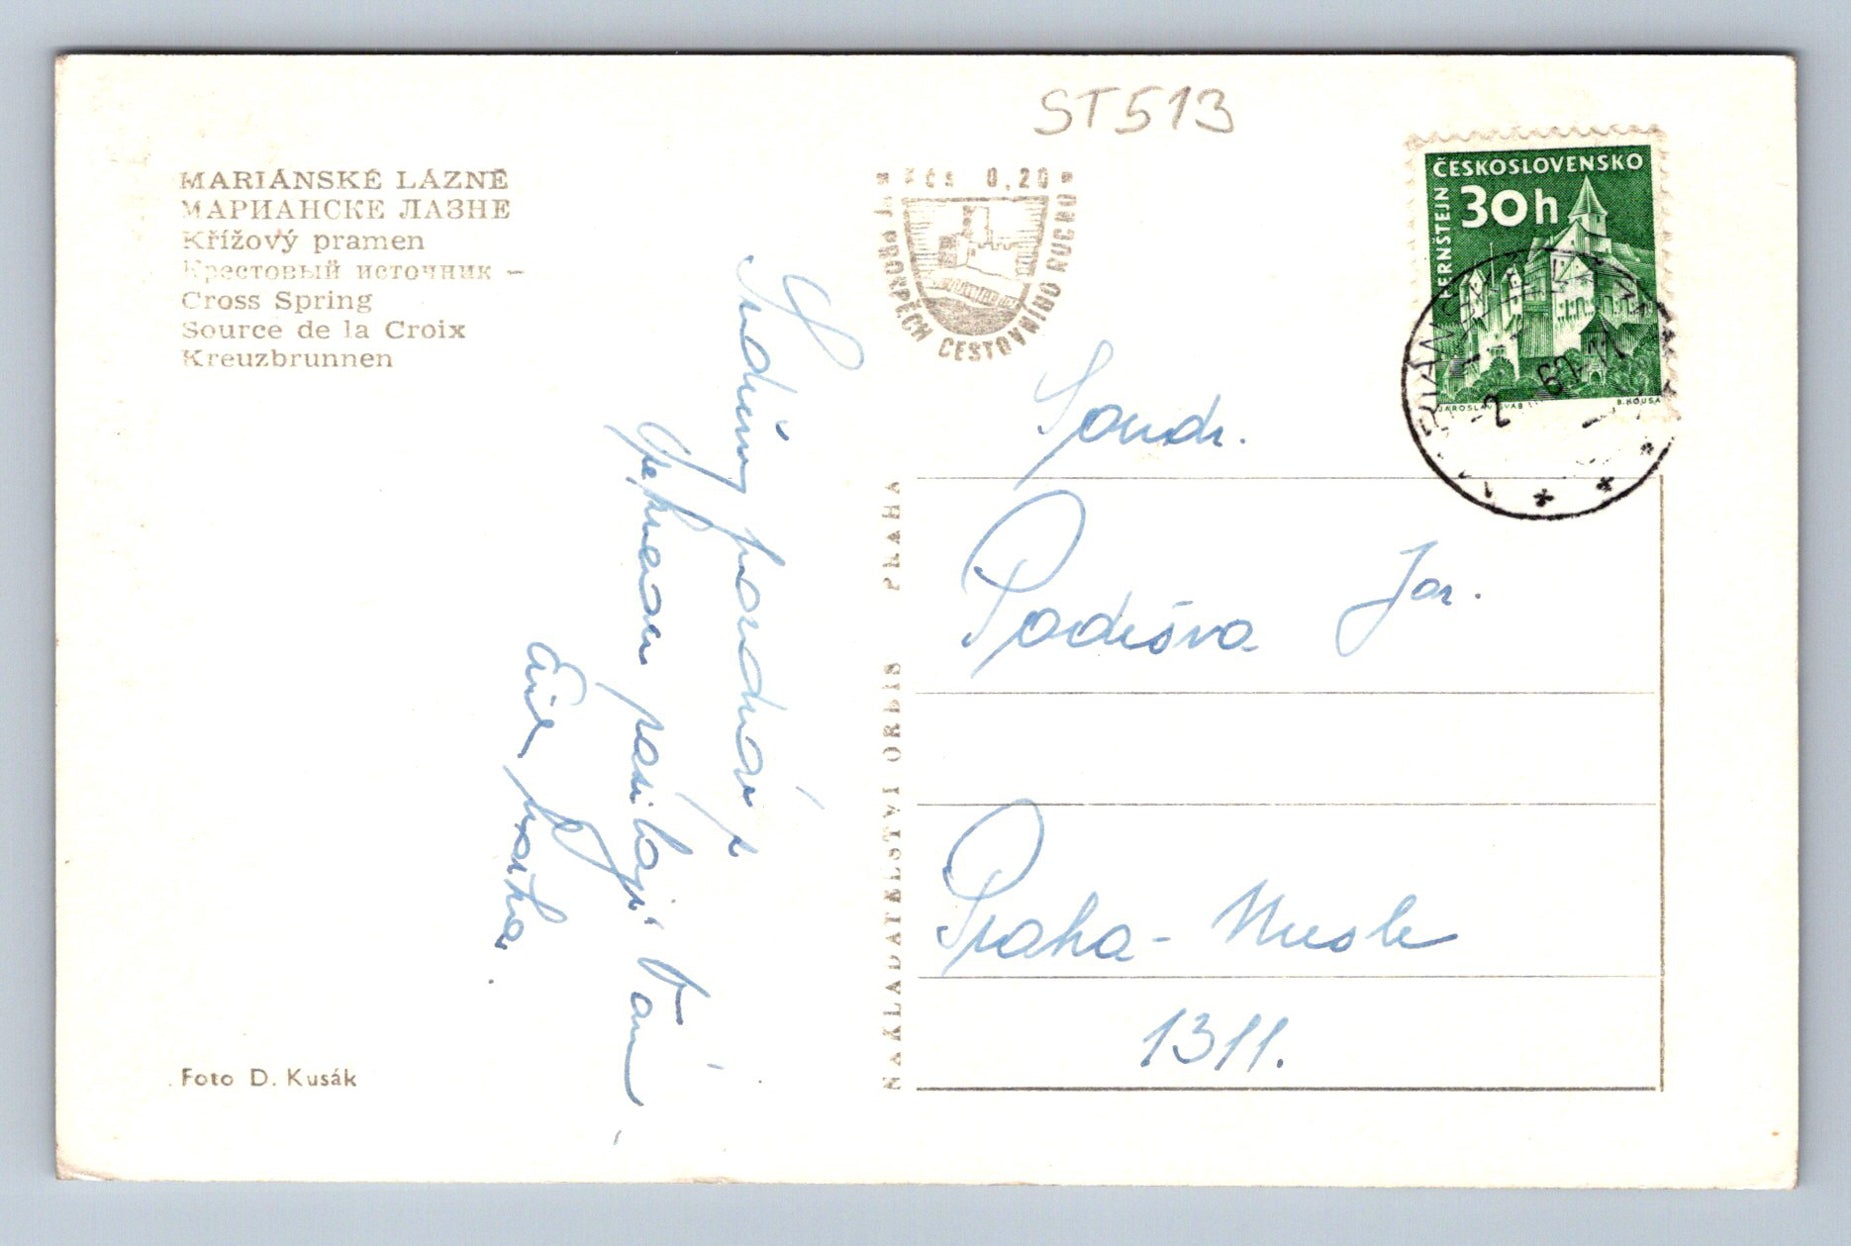 ST513
MARIÁNSKÉ LÁZNĚ
МАРИАНСКЕ ЛАЗНЕ
Křížový pramen
Крестовый источник –
Cross Spring
Source de la Croix
Kreuzbrunnen
Kčs 0,20
VE PROSPĚCH CESTOVNÍHO RUCHU
ČESKOSLOVENSKO
30h
PERNŠTEJN
JAROSLAV ŠVÁB
B. HOUSA
Srdečný pozdrav z
posílají Vám
Soudr.
Podešva Jar.
Praha - Nusle
1311.
NAKLADATELSTVÍ ORBIS PRAHA
Foto D. Kusák